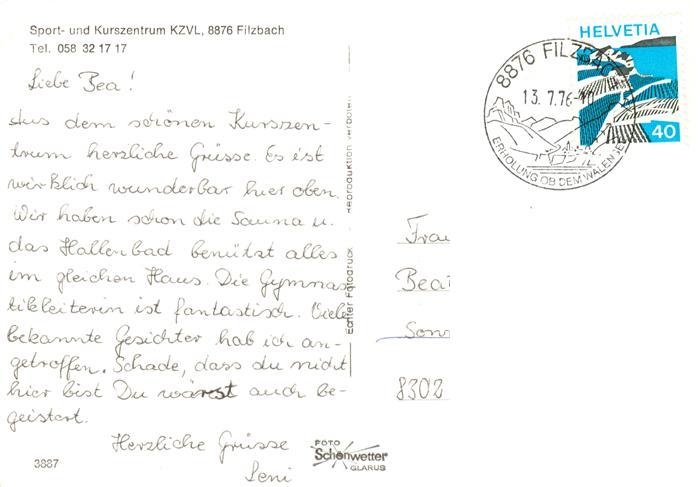 Sport- und Kurszentrum KZVL, 8876 Filzbach
Tel. 058 32 17 17
Liebe Bea!
Aus dem schönen Kurszen-
trum herzliche Grüsse. Es ist
wirklich wunderbar hier oben.
Wir haben schon die Sauna u.
das Hallenbad benützt alles
im gleichen Haus. Die Gymnas
tikleiterin ist fantastisch. Viele
bekannte Gesichter hab ich an-
getroffen. Schade, dass du nicht
hier bist Du wärest auch be-
geistert.
Herzliche Grüsse
Leni
3887
Reproduktion verboten
Echter Fotodruck
FOTO
Schönwetter
GLARUS
HELVETIA
40
8876 FILZBACH
13.7.76-
ERHOLUNG OB DEM WALENSEE
Frau
Bea
Sonn
8302